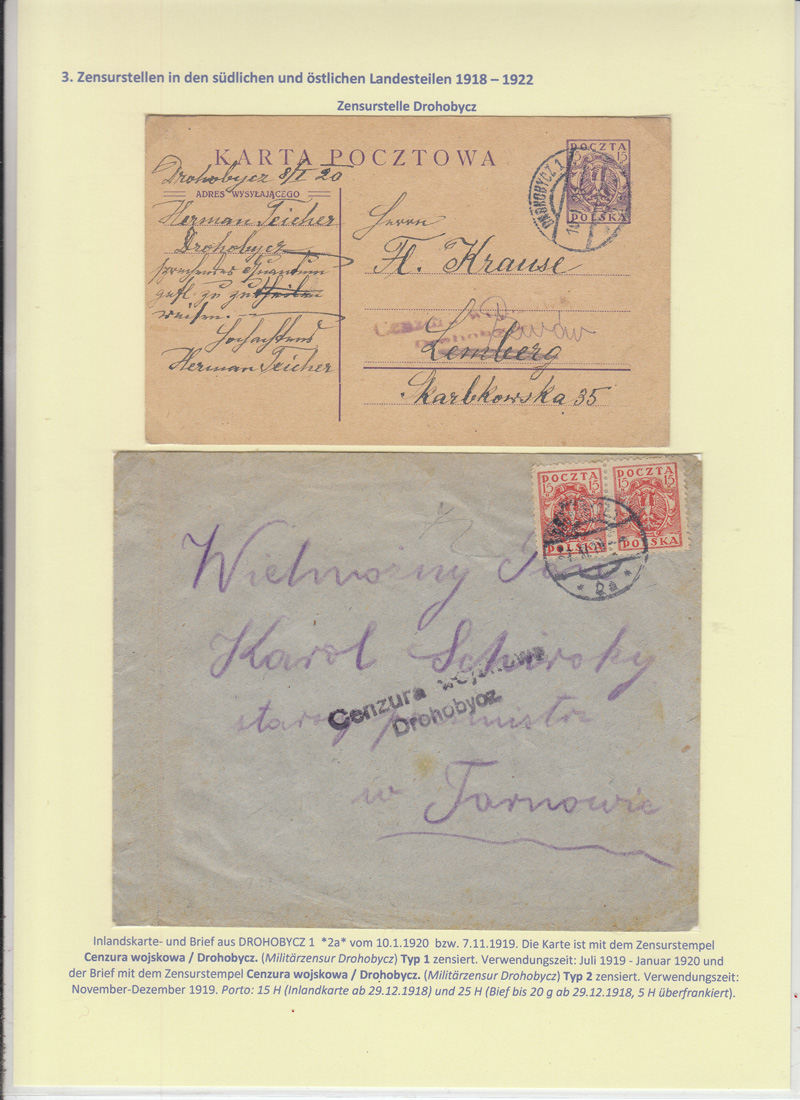 3. Zensurstellen in den südlichen und östlichen Landesteilen 1918 – 1922
Zensurstelle Drohobycz
KARTA POCZTOWA
POCZTA
15 15
POLSKA
DROHOBYCZ 1
10
Drohobycz 8/I 20
ADRES WYSYŁAJĄCEGO
Herman Teicher
Drohobycz
gefl. zu
weisen.
Hochachtend
Herman Teicher
Herrn
Fl. Krause
Cenzura
Lwów
Lemberg
Skarbkowska 35
POCZTA POCZTA
15 15 15 15
POLSKA POLSKA
* 2a *
Wielmożny Pan
Karol Schirsky
starszy
w Tarnowie
Cenzura wojskowa
Drohobycz.
Inlandskarte- und Brief aus DROHOBYCZ 1 *2a* vom 10.1.1920 bzw. 7.11.1919. Die Karte ist mit dem Zensurstempel
Cenzura wojskowa / Drohobycz. (Militärzensur Drohobycz) Typ 1 zensiert. Verwendungszeit: Juli 1919 - Januar 1920 und
der Brief mit dem Zensurstempel Cenzura wojskowa / Drohobycz. (Militärzensur Drohobycz) Typ 2 zensiert. Verwendungszeit:
November-Dezember 1919. Porto: 15 H (Inlandkarte ab 29.12.1918) und 25 H (Bief bis 20 g ab 29.12.1918, 5 H überfrankiert).